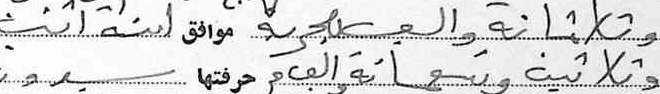 وثلاثمائة والف هجرية موافق لسنة اثنين
وثلاثين وتسعمائة والف م حرفتها